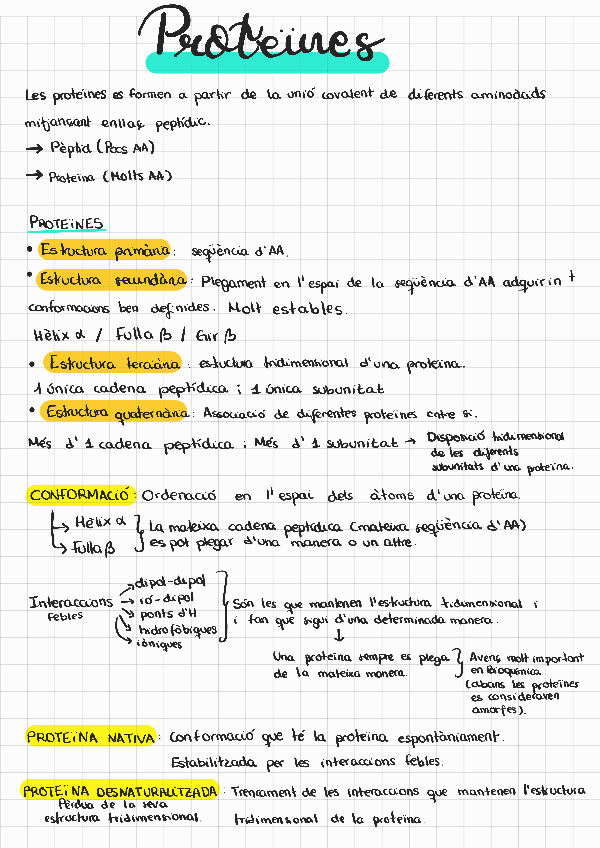 Proteïnes
Les proteïnes es formen a partir de la unió covalent de diferents aminoàcids
mitjançant enllaç peptídic.
→ Pèptid (Pocs AA)
→ Proteïna (Molts AA)
PROTEÏNES
• Estructura primària: seqüència d'AA.
• Estructura secundària: Plegament en l'espai de la seqüència d'AA adquirint
conformacions ben definides. Molt estables.
Hèlix α / Fulla β / Gir β
• Estructura terciària: estructura tridimensional d'una proteïna.
1 única cadena peptídica i 1 única subunitat
• Estructura quaternària: Associació de diferentes proteïnes entre si.
Més d'1 cadena peptídica i Més d'1 subunitat → Disposició tridimensional
de les diferents
subunitats d'una proteïna.
CONFORMACIÓ: Ordenació en l'espai dels àtoms d'una proteïna.
→ Hèlix α
→ Fulla β
La mateixa cadena peptídica (mateixa seqüència d'AA)
es pot plegar d'una manera o un altre.
Interaccions
febles
→ dipol-dipol
→ ió-dipol
→ ponts d'H
→ hidrofòbiques
→ iòniques
Són les que mantenen l'estructura tridimensional i
i fan que sigui d'una determinada manera.
↓
Una proteïna sempre es plega
de la mateixa manera.
Avenç molt important
en Bioquímica
(abans les proteïnes
es consideraven
amorfes).
PROTEÏNA NATIVA: Conformació que té la proteïna espontàniament.
Estabilitzada per les interaccions febles.
PROTEÏNA DESNATURALITZADA: Trencament de les interaccions que mantenen l'estructura
Pèrdua de la seva
estructura tridimensional.
tridimensional de la proteïna.